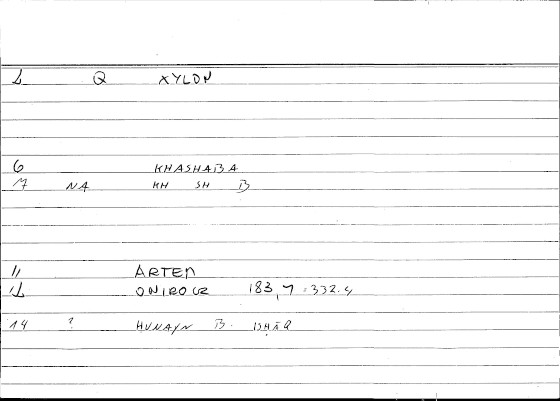 1 Q XYLON
6 KHASHABA
7 NA KH SH B
11 ARTEM
12 ONIROCR 183,7 = 332.4
14 ? ḤUNAYN B. ISḤĀQ